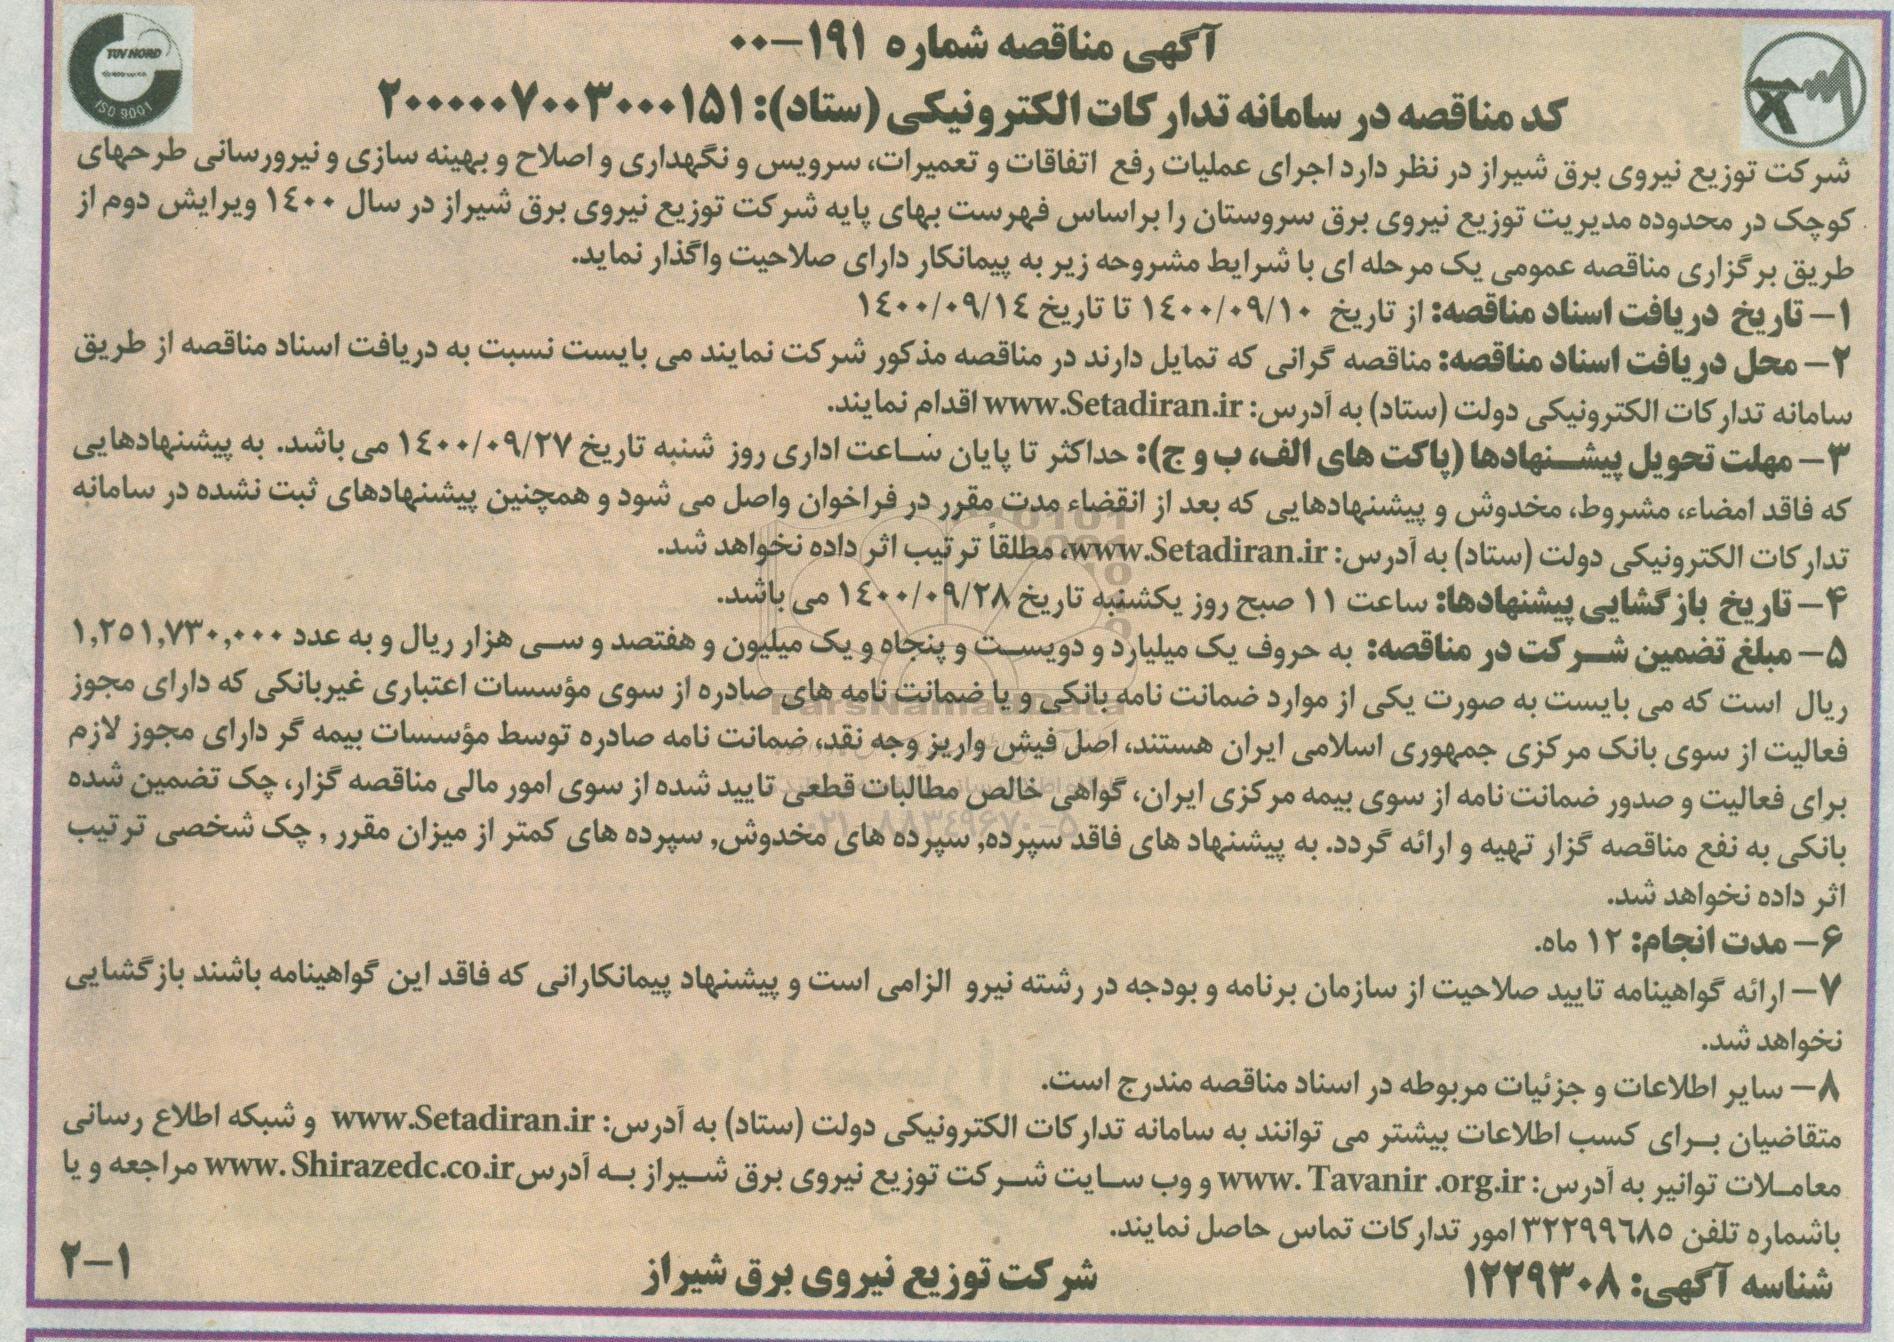 آگهی مناقصه شماره ۱۹۱-۰۰
کد مناقصه در سامانه تدارکات الکترونیکی (ستاد): ۲۰۰۰۰۰۷۰۰۳۰۰۰۱۵۱
TUV NORD
ISO 9001
شرکت توزیع نیروی برق شیراز در نظر دارد اجرای عملیات رفع اتفاقات و تعمیرات، سرویس و نگهداری و اصلاح و بهینه سازی و نیرورسانی طرحهای
کوچک در محدوده مدیریت توزیع نیروی برق سروستان را براساس فهرست بهای پایه شرکت توزیع نیروی برق شیراز در سال ۱۴۰۰ ویرایش دوم از
طریق برگزاری مناقصه عمومی یک مرحله ای با شرایط مشروحه زیر به پیمانکار دارای صلاحیت واگذار نماید.
۱- تاریخ دریافت اسناد مناقصه: از تاریخ ۱۴۰۰/۰۹/۱۰ تا تاریخ ۱۴۰۰/۰۹/۱۴
۲- محل دریافت اسناد مناقصه: مناقصه گرانی که تمایل دارند در مناقصه مذکور شرکت نمایند می بایست نسبت به دریافت اسناد مناقصه از طریق
سامانه تدارکات الکترونیکی دولت (ستاد) به آدرس: www.Setadiran.ir اقدام نمایند.
۳- مهلت تحویل پیشنهادها (پاکت های الف، ب و ج): حداکثر تا پایان ساعت اداری روز شنبه تاریخ ۱۴۰۰/۰۹/۲۷ می باشد. به پیشنهادهایی
که فاقد امضاء، مشروط، مخدوش و پیشنهادهایی که بعد از انقضاء مدت مقرر در فراخوان واصل می شود و همچنین پیشنهادهای ثبت نشده در سامانه
تدارکات الکترونیکی دولت (ستاد) به آدرس: www.Setadiran.ir، مطلقاً ترتیب اثر داده نخواهد شد.
۴- تاریخ بازگشایی پیشنهادها: ساعت ۱۱ صبح روز یکشنبه تاریخ ۱۴۰۰/۰۹/۲۸ می باشد.
۵- مبلغ تضمین شرکت در مناقصه: به حروف یک میلیارد و دویست و پنجاه و یک میلیون و هفتصد و سی هزار ریال و به عدد ۱,۲۵۱,۷۳۰,۰۰۰
ریال است که می بایست به صورت یکی از موارد ضمانت نامه بانکی و یا ضمانت نامه های صادره از سوی مؤسسات اعتباری غیربانکی که دارای مجوز
فعالیت از سوی بانک مرکزی جمهوری اسلامی ایران هستند، اصل فیش واریز وجه نقد، ضمانت نامه صادره توسط مؤسسات بیمه گر دارای مجوز لازم
برای فعالیت و صدور ضمانت نامه از سوی بیمه مرکزی ایران، گواهی خالص مطالبات قطعی تایید شده از سوی امور مالی مناقصه گزار، چک تضمین شده
بانکی به نفع مناقصه گزار تهیه و ارائه گردد. به پیشنهاد های فاقد سپرده, سپرده های مخدوش, سپرده های کمتر از میزان مقرر , چک شخصی ترتیب
اثر داده نخواهد شد.
۶- مدت انجام: ۱۲ ماه.
۷- ارائه گواهینامه تایید صلاحیت از سازمان برنامه و بودجه در رشته نیرو الزامی است و پیشنهاد پیمانکارانی که فاقد این گواهینامه باشند بازگشایی
نخواهد شد.
۸- سایر اطلاعات و جزئیات مربوطه در اسناد مناقصه مندرج است.
متقاضیان برای کسب اطلاعات بیشتر می توانند به سامانه تدارکات الکترونیکی دولت (ستاد) به آدرس: www.Setadiran.ir و شبکه اطلاع رسانی
معاملات توانیر به آدرس: www. Tavanir .org.ir و وب سایت شرکت توزیع نیروی برق شیراز به آدرس www. Shirazedc.co.ir مراجعه و یا
باشماره تلفن ۳۲۲۹۹۶۸۵ امور تدارکات تماس حاصل نمایند.
شناسه آگهی: ۱۲۲۹۳۰۸
شرکت توزیع نیروی برق شیراز
۲-۱
ParsNamadData
۰۲۱-۸۸۳۴۹۶۷۰-۵